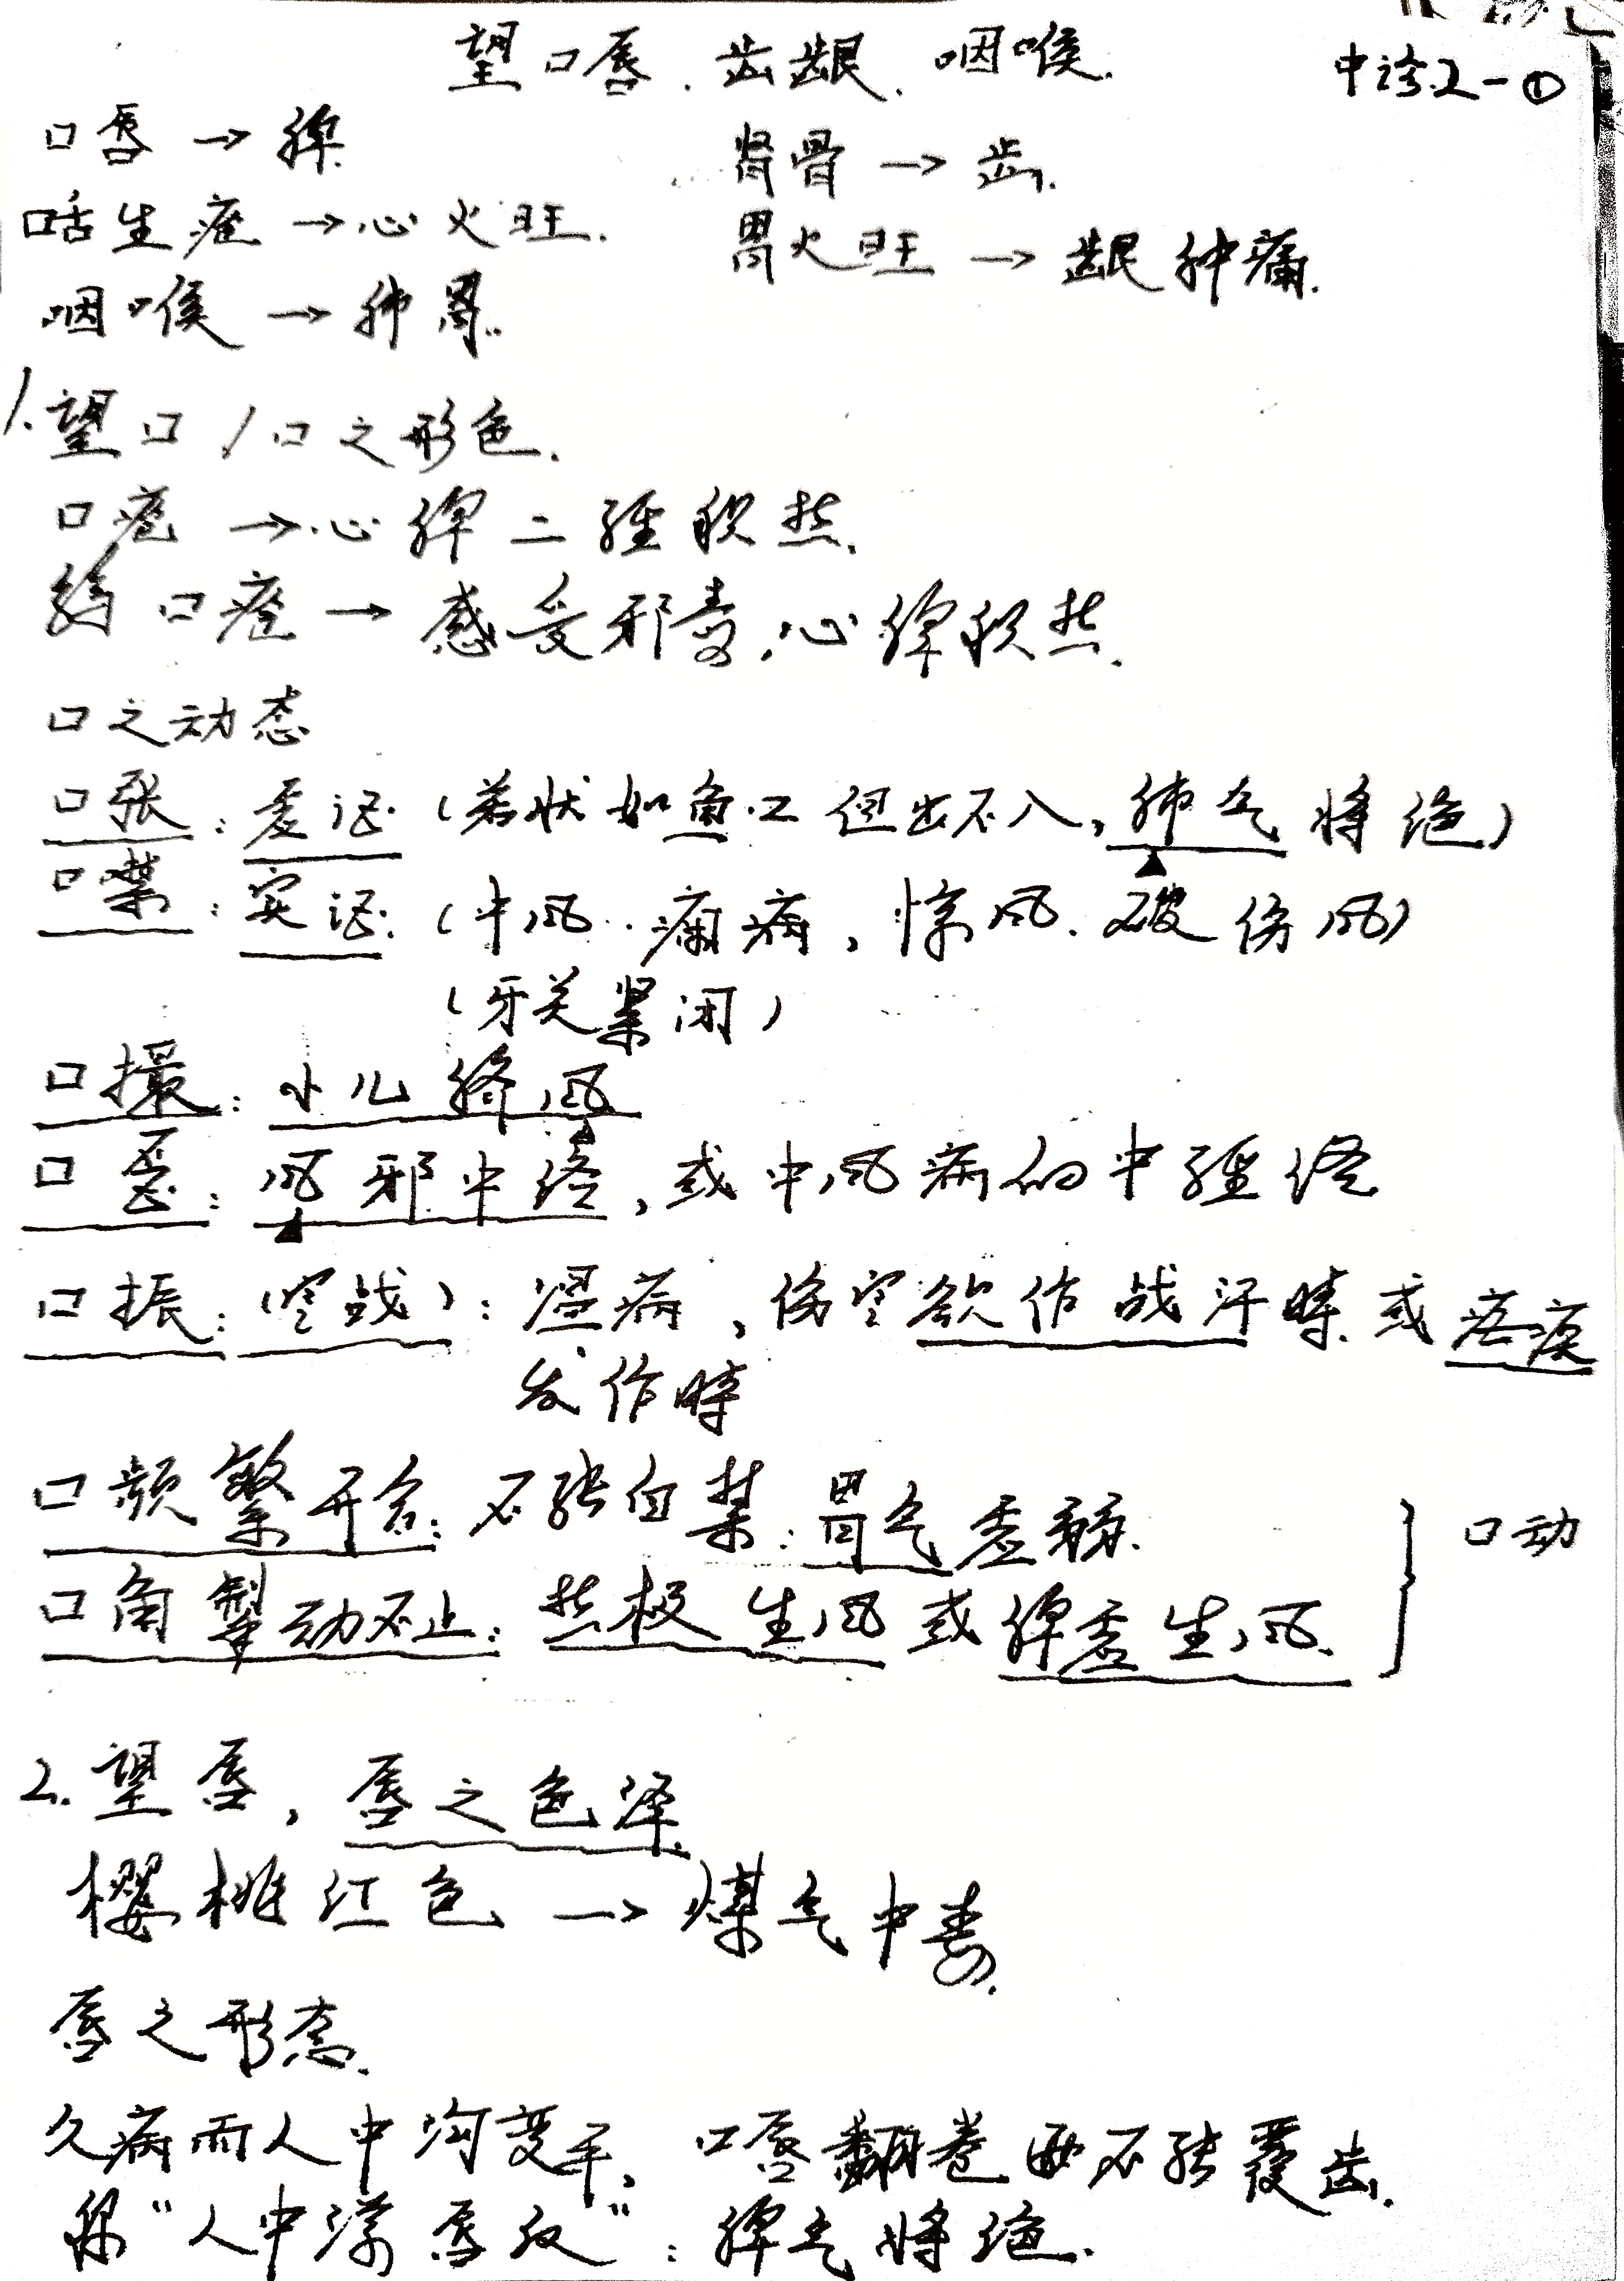 望口唇、齿龈、咽喉.
中诊2-①
口唇→脾
肾骨→齿.
口舌生疮→心火旺.
胃火旺→龈肿痛.
咽喉→肺胃.
1.望口/口之形色.
口疮→心脾二经积热.
口疮→感受邪毒,心脾积热.
口之动态
口张:虚证(若状如鱼口但出不入,肺气将绝)
口噤:实证:(中风.痫病,惊风.破伤风)
(牙关紧闭)
口撮:小儿脐风
口㖞:风邪中络,或中风病的中经络
口振:(寒战):温病,伤寒欲作战汗時.或疟疾
发作時
口频繁开合:不能自禁:胃气虚弱.
口动
口角掣动不止:热极生风或脾虚生风.
2.望唇,唇之色泽.
樱桃红色→煤气中毒.
唇之形态.
久病而人中沟变平,口唇翻卷而不能覆齿.
称“人中满唇反”:脾气将绝.